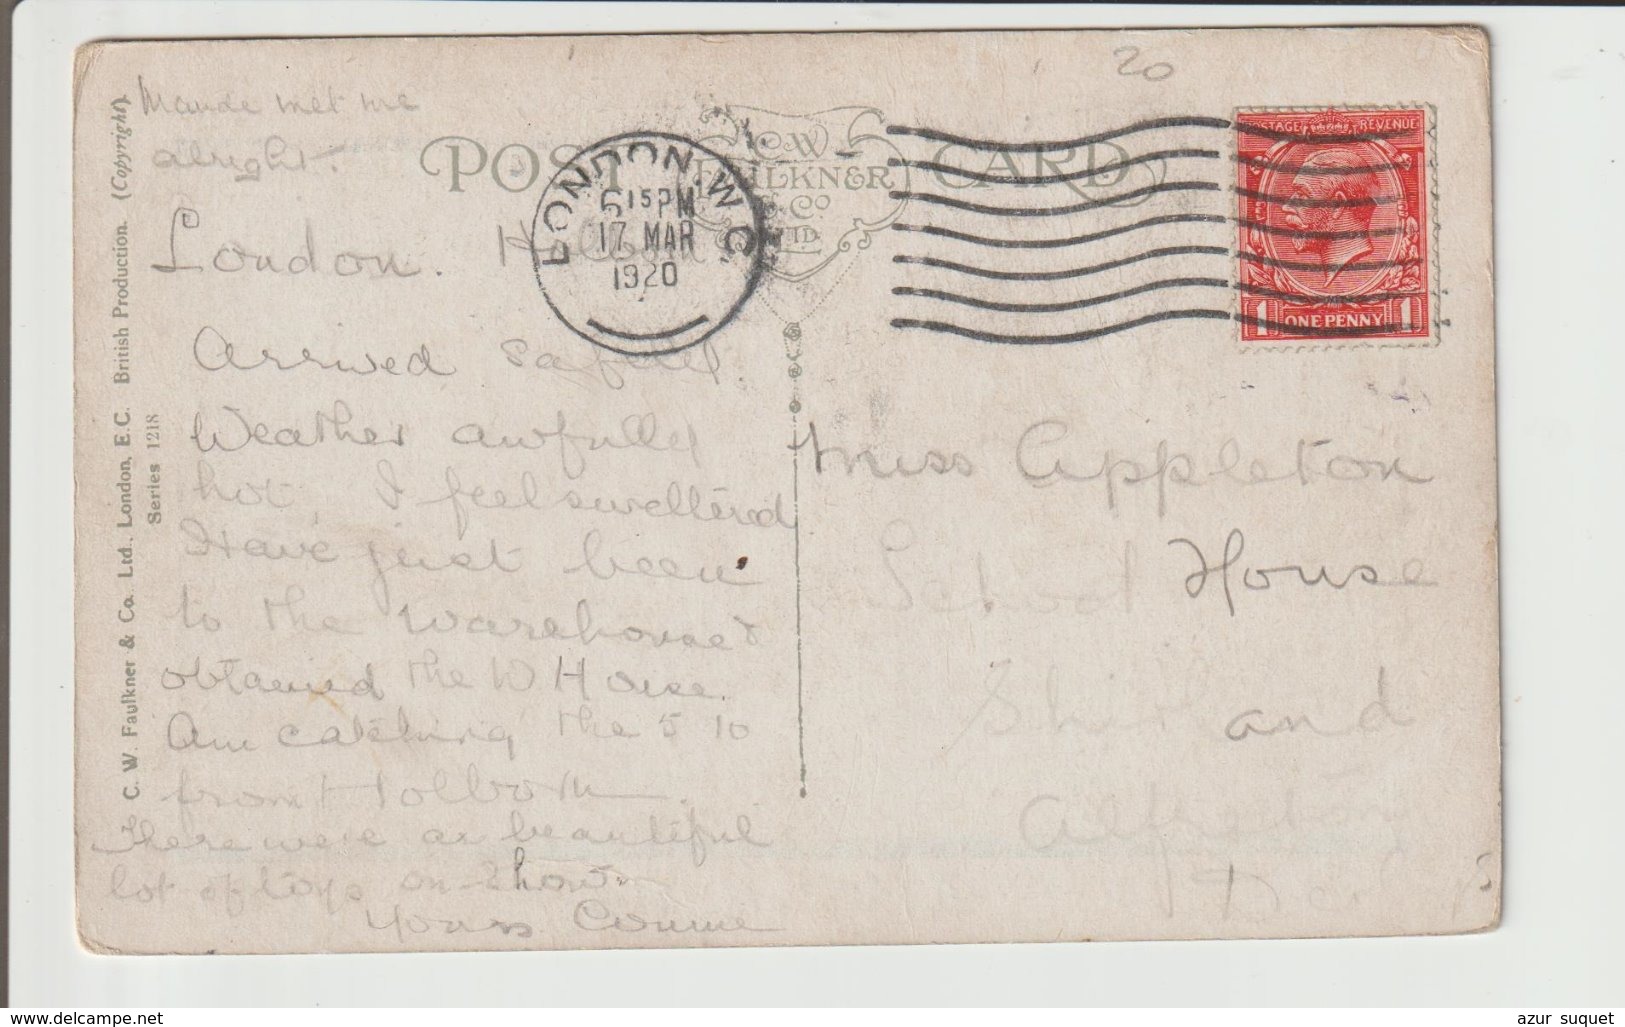 Maude met me
alright.
POST CARD
C.W. FAULKNER & Co LTD
LONDON. W.C
6 15 PM
17 MAR
1920
POSTAGE REVENUE
1 ONE PENNY 1
20
London. Holborn
Arrived safely.
Weather awfully
hot, I feel sweltered
Have just been
to the Warehouse &
obtained the W House.
Am catching the 5 10
from Holborn.
There were a beautiful
lot of toys on show
Yours Connie
Miss Appleton
School House
Shirland
Alfreton
Derbys
C. W. Faulkner & Co. Ltd., London, E.C. British Production. (Copyright).
Series 1218
www.delcampe.net
azur_suquet